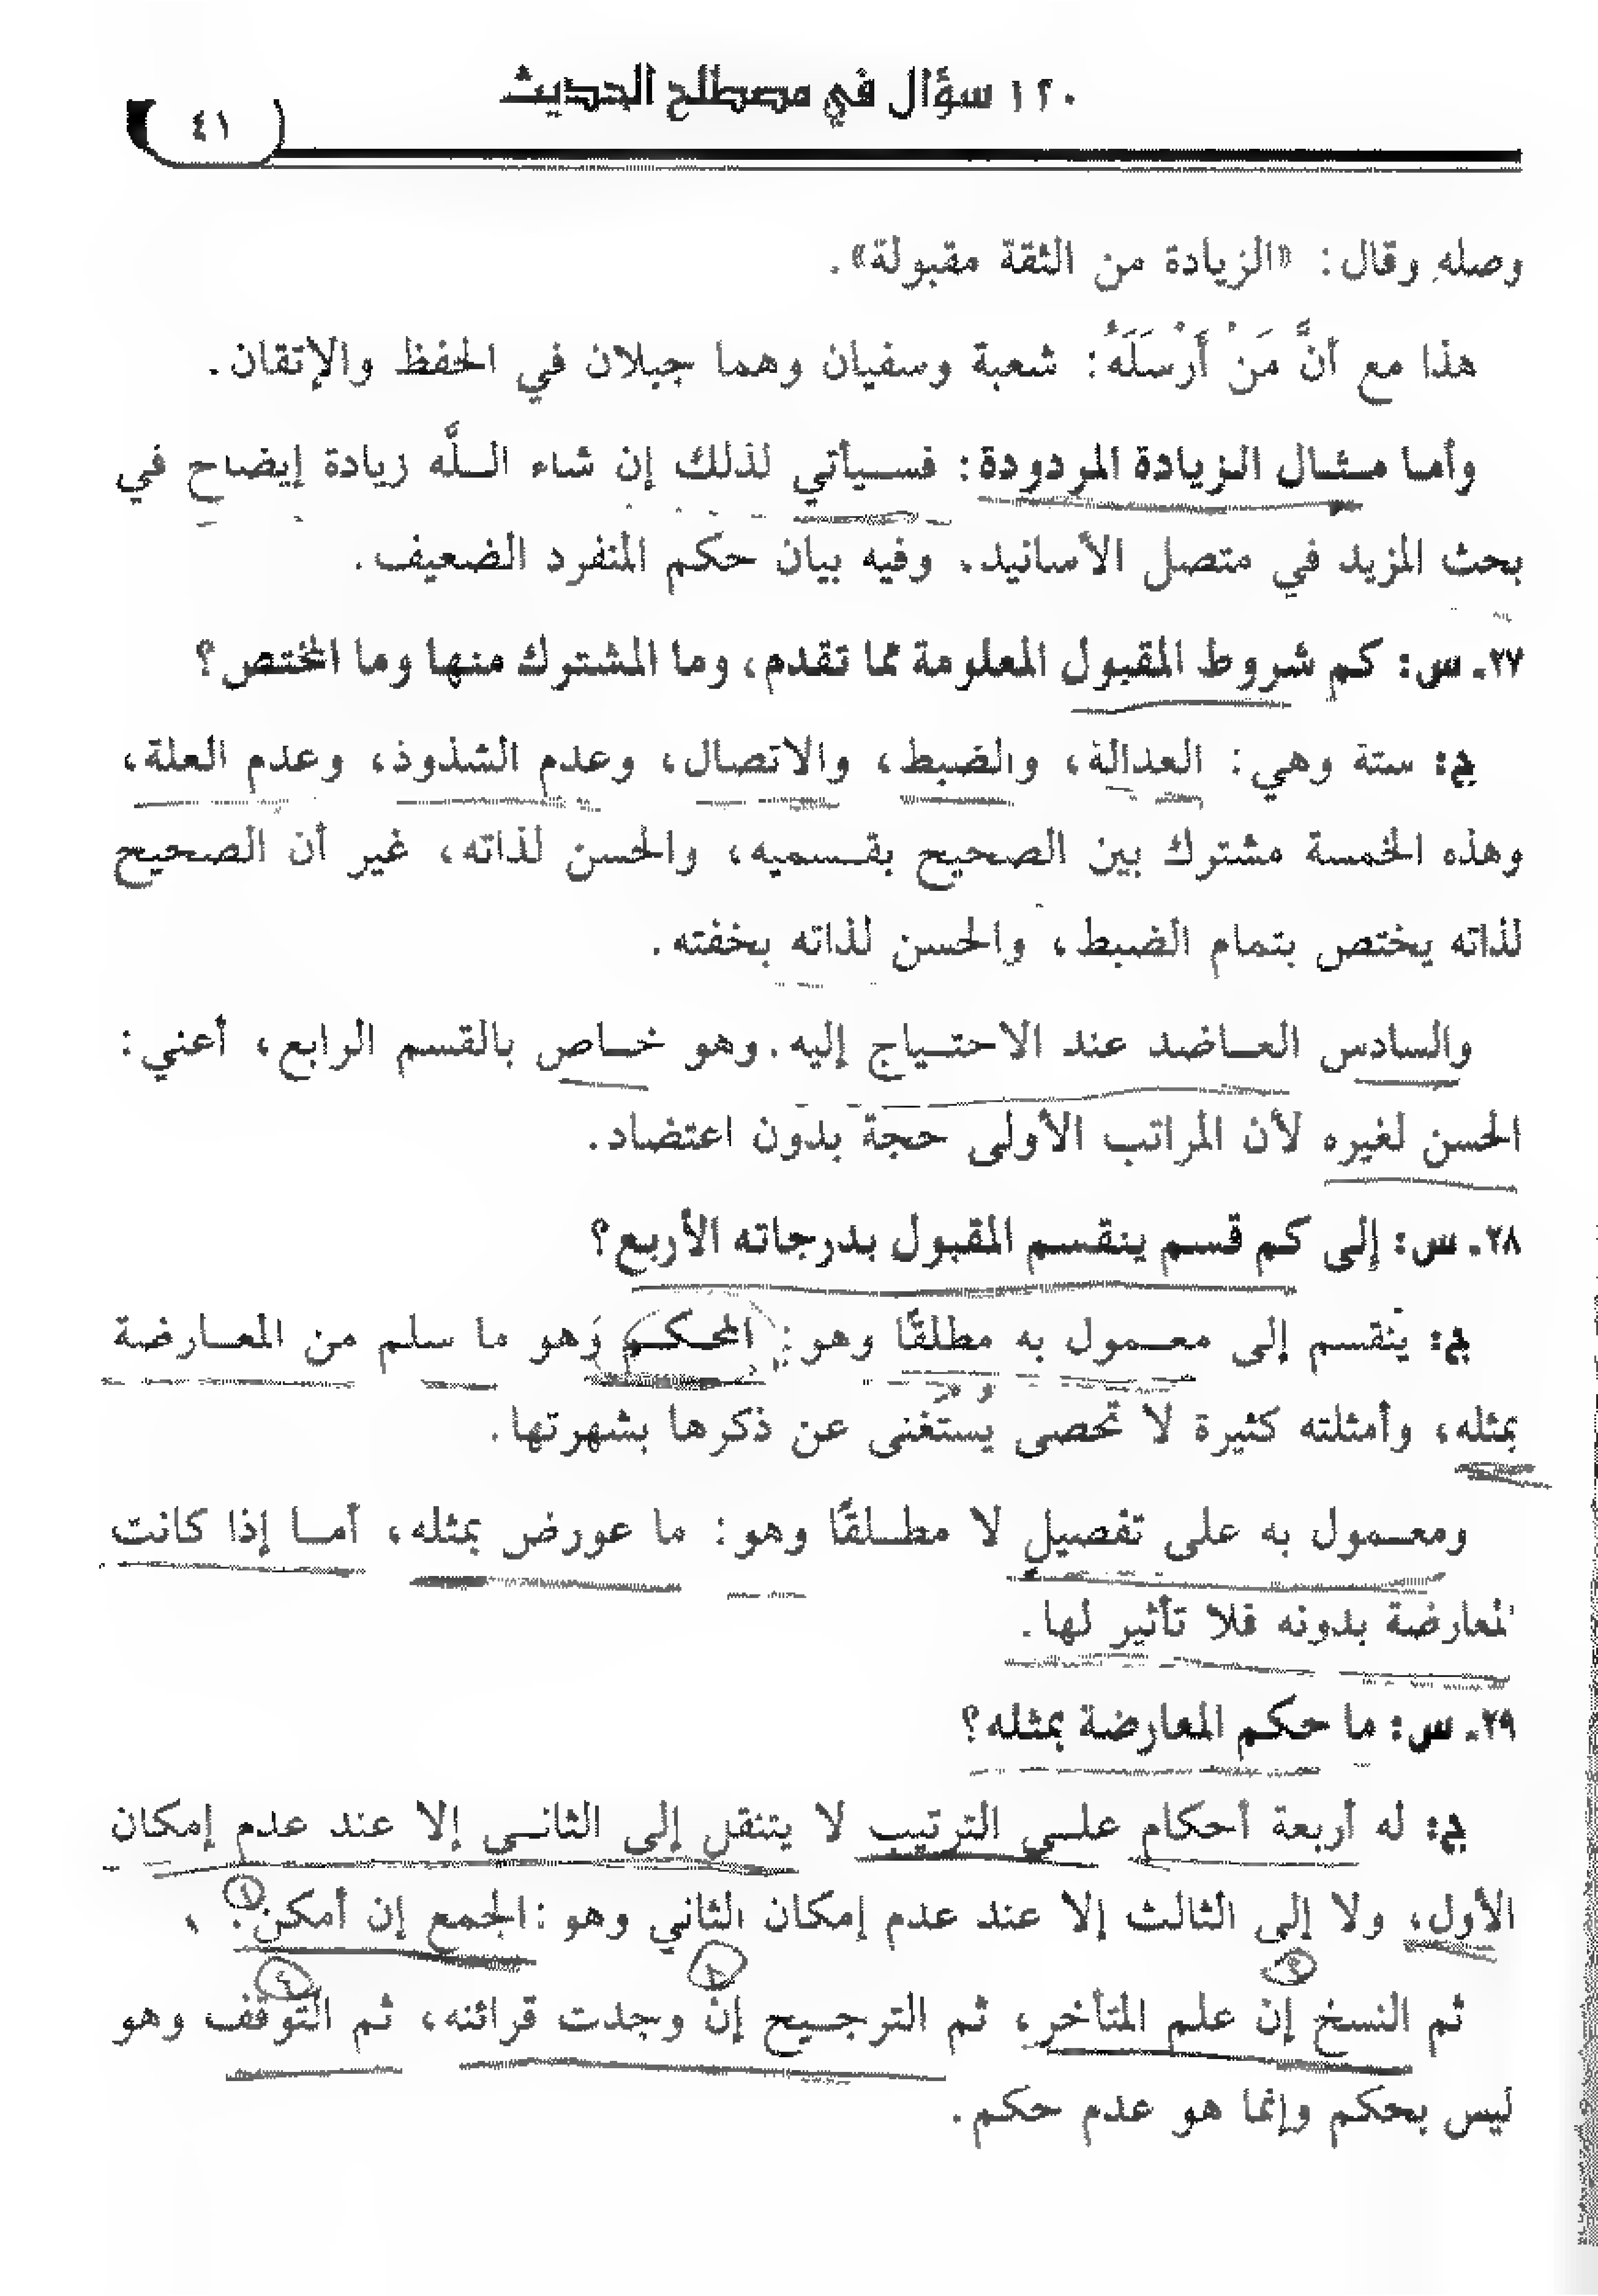 ١٢٠ سؤال في مصطلح الحديث
٤١
وصله وقال: «الزيادة من الثقة مقبولة».
هذا مع أنَّ مَنْ أَرْسَلَهُ: شعبة وسفيان وهما جبلان في الحفظ والإتقان.
وأما مثال الزيادة المردودة: فسيأتي لذلك إن شاء اللَّه زيادة إيضاح في
بحث المزيد في متصل الأسانيد. وفيه بيان حكم المنفرد الضعيف.
٢٧. س: كم شروط المقبول المعلومة مما تقدم، وما المشترك منها وما المختص؟
ج: ستة وهي: العدالة، والضبط، والاتصال، وعدم الشذوذ، وعدم العلة،
وهذه الخمسة مشترك بين الصحيح بقسميه، والحسن لذاته، غير أن الصحيح
لذاته يختص بتمام الضبط، والحسن لذاته بخفته.
والسادس العاضد عند الاحتياج إليه. وهو خاص بالقسم الرابع، أعني:
الحسن لغيره لأن المراتب الأولى حجة بدون اعتضاد.
٢٨. س: إلى كم قسم ينقسم المقبول بدرجاته الأربع؟
ج: ينقسم إلى معمول به مطلقًا وهو: المحكم وهو ما سلم من المعارضة
بمثله، وأمثلته كثيرة لا تحصى يستغنى عن ذكرها بشهرتها.
ومعمول به على تفصيل لا مطلقًا وهو: ما عورض بمثله، أما إذا كانت
المعارضة بدونه فلا تأثير لها.
٢٩. س: ما حكم المعارضة بمثله؟
ج: له أربعة أحكام على الترتيب لا ينتقل إلى الثاني إلا عند عدم إمكان
الأول، ولا إلى الثالث إلا عند عدم إمكان الثاني وهو: الجمع إن أمكن.
ثم النسخ إن علم المتأخر، ثم الترجيح إن وجدت قرائنه، ثم التوقف وهو
ليس بحكم وإنما هو عدم حكم.